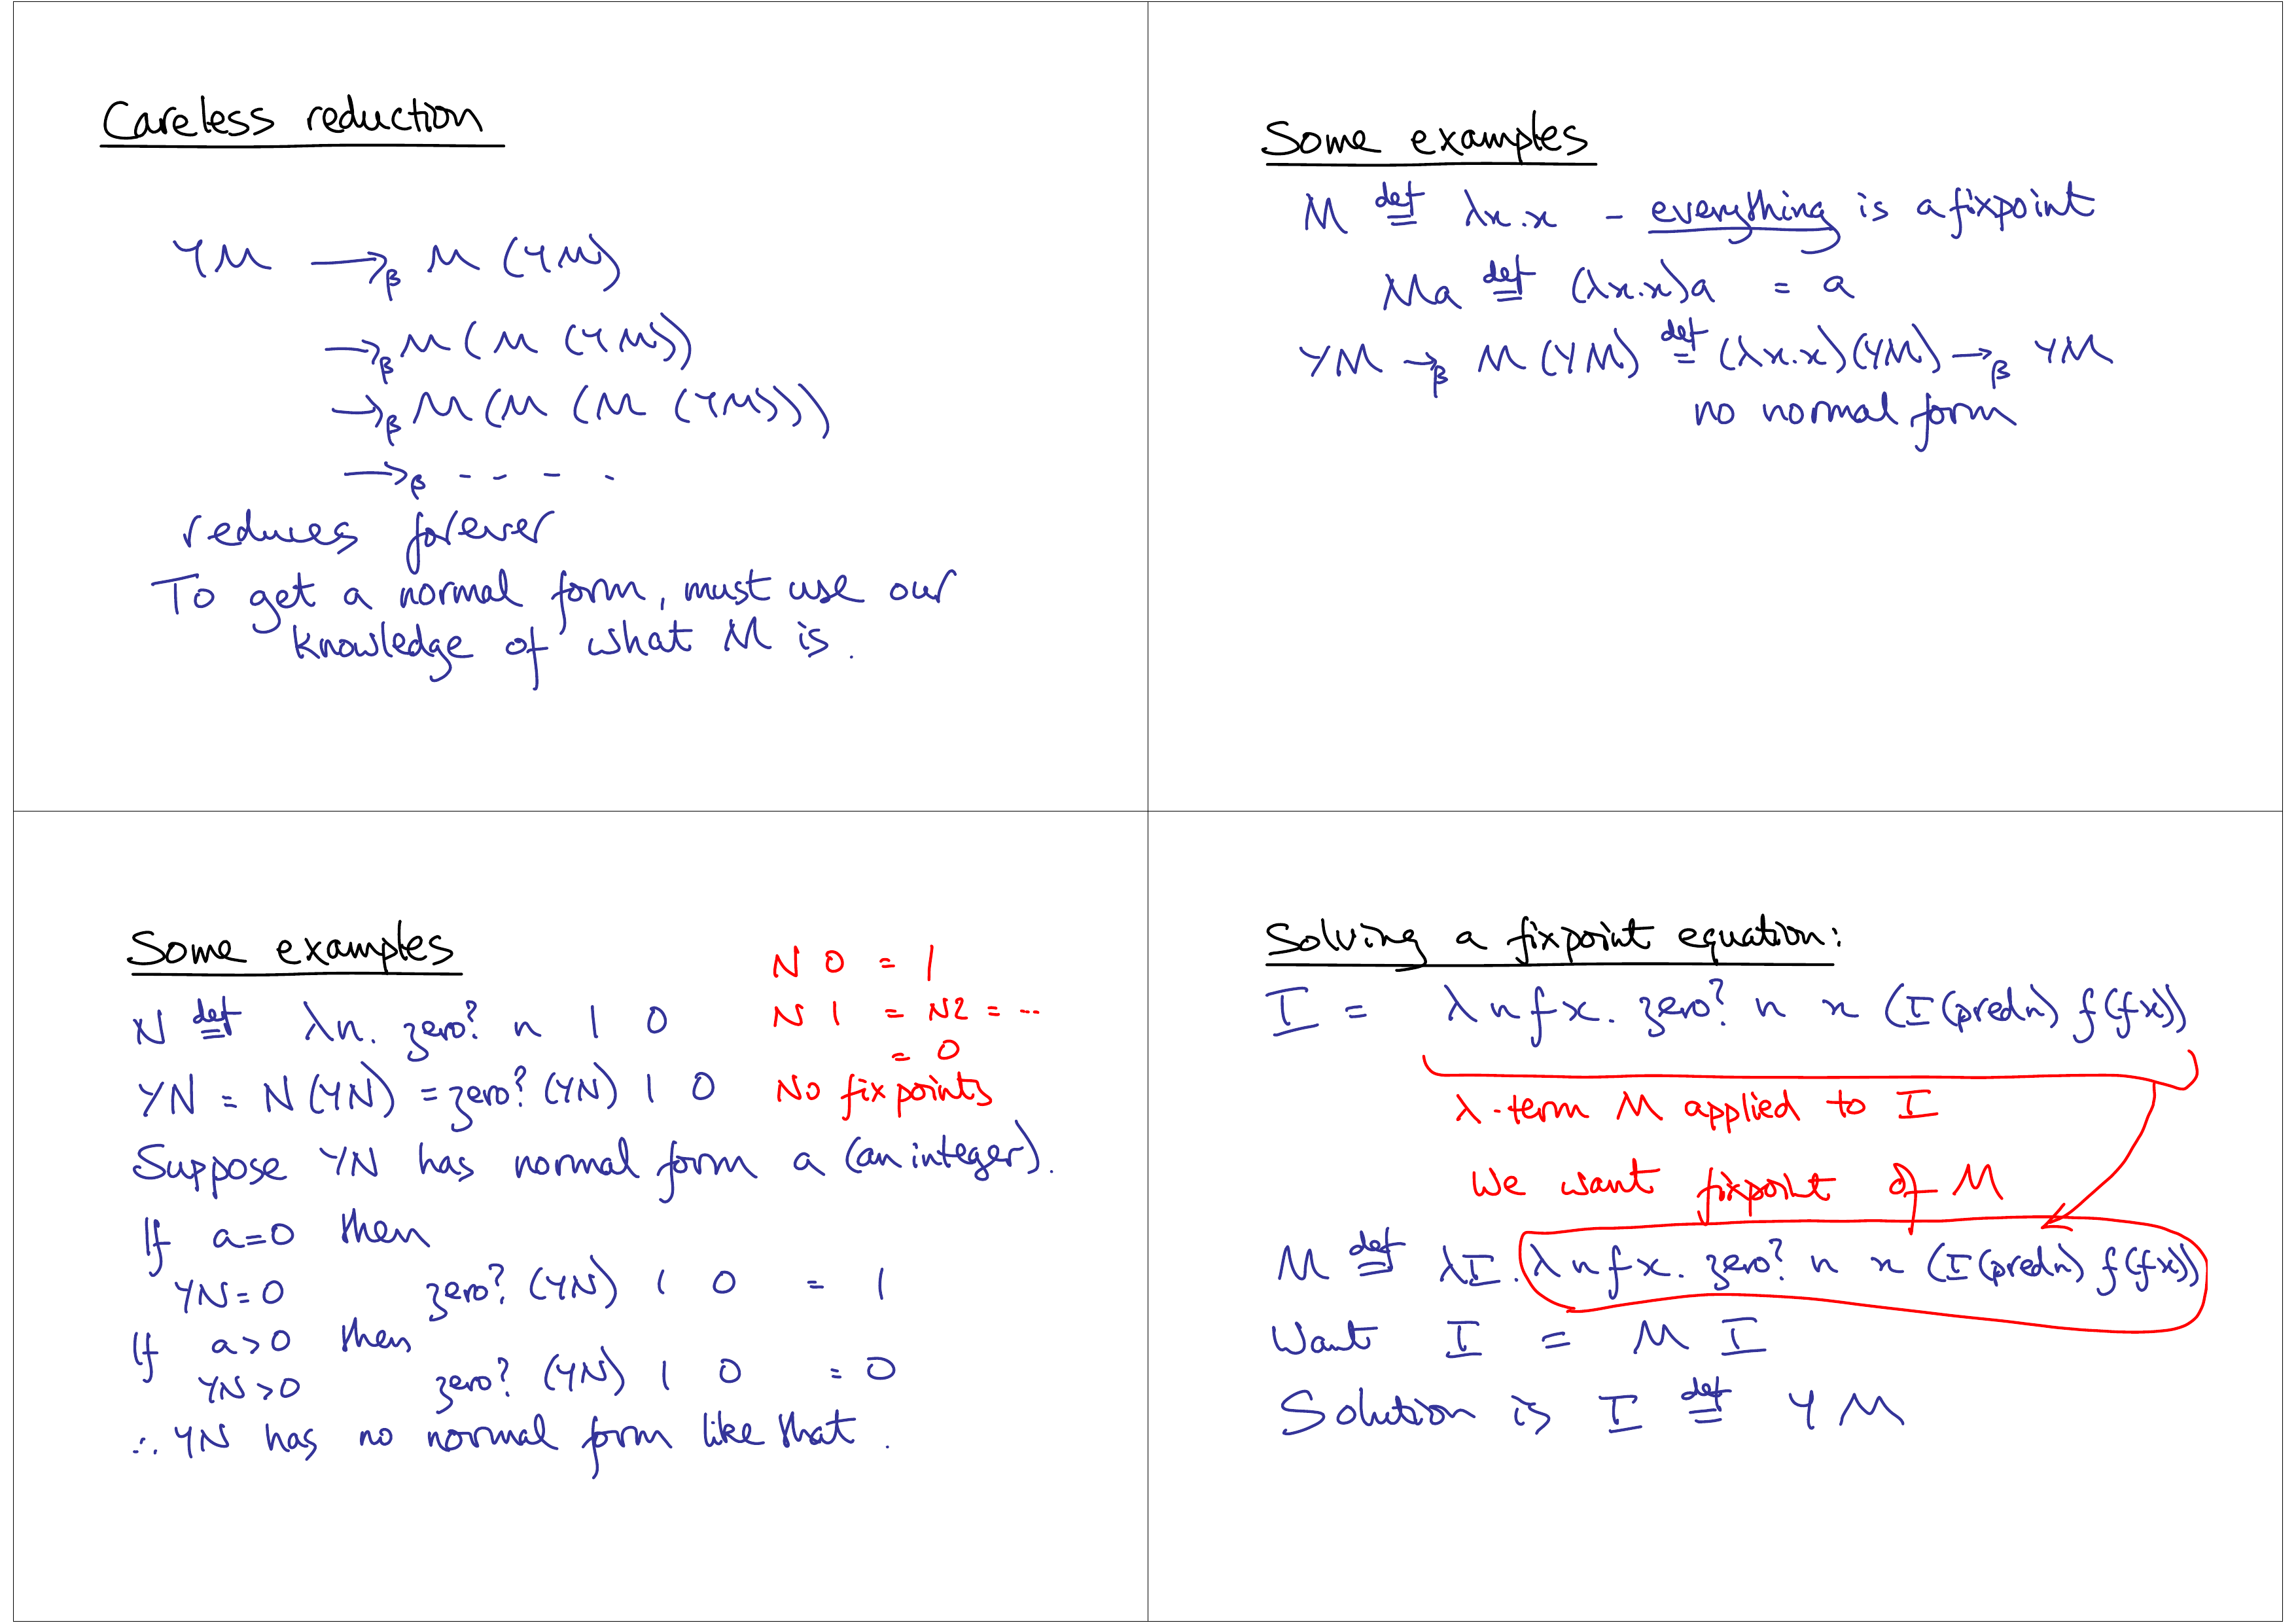 Careless reduction
YM →β M (YM)
→β M (M (YM))
→β M (M (M (YM)))
→β - - - .
reduces forever
To get a normal form, must use our
knowledge of what M is.
Some examples
M def= λx.x - everything is a fixpoint
Ma def= (λx.x)a = a
YM →β M (YM) def= (λx.x)(YM) →β YM
no normal form
Some examples
N def= λn. zero? n 1 0
YN = N (YN) = zero? (YN) 1 0
N 0 = 1
N 1 = N2 = ...
= 0
No fixpoints
Suppose YN has normal form a (an integer).
If a=0 then
YN=0 zero? (YN) 1 0 = 1
If a>0 then
YN>0 zero? (YN) 1 0 = 0
∴ YN has no normal form like that.
Solving a fixpoint equation:
I = λnfx. zero? n x (I (pred n) f (fx))
λ-term M applied to I
We want fixpoint of M
M def= λI. λnfx. zero? n x (I (pred n) f (fx))
Want I = M I
Solution is I def= YM